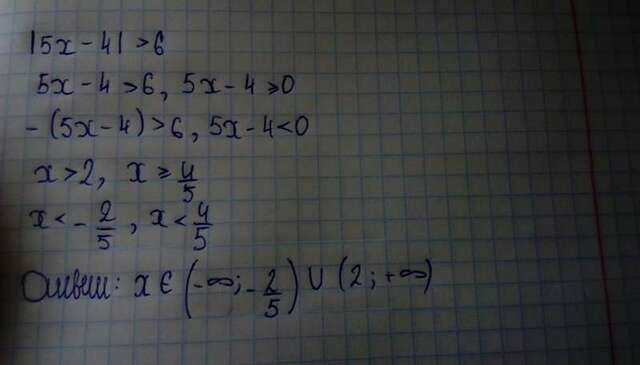 |5x - 4| > 6
5x - 4 > 6, 5x - 4 ⩾ 0
- (5x - 4) > 6, 5x - 4 < 0
x > 2, x ⩾ 4/5
x < - 2/5, x < 4/5
Ответ: x ∈ (-∞; - 2/5) ∪ (2; +∞)